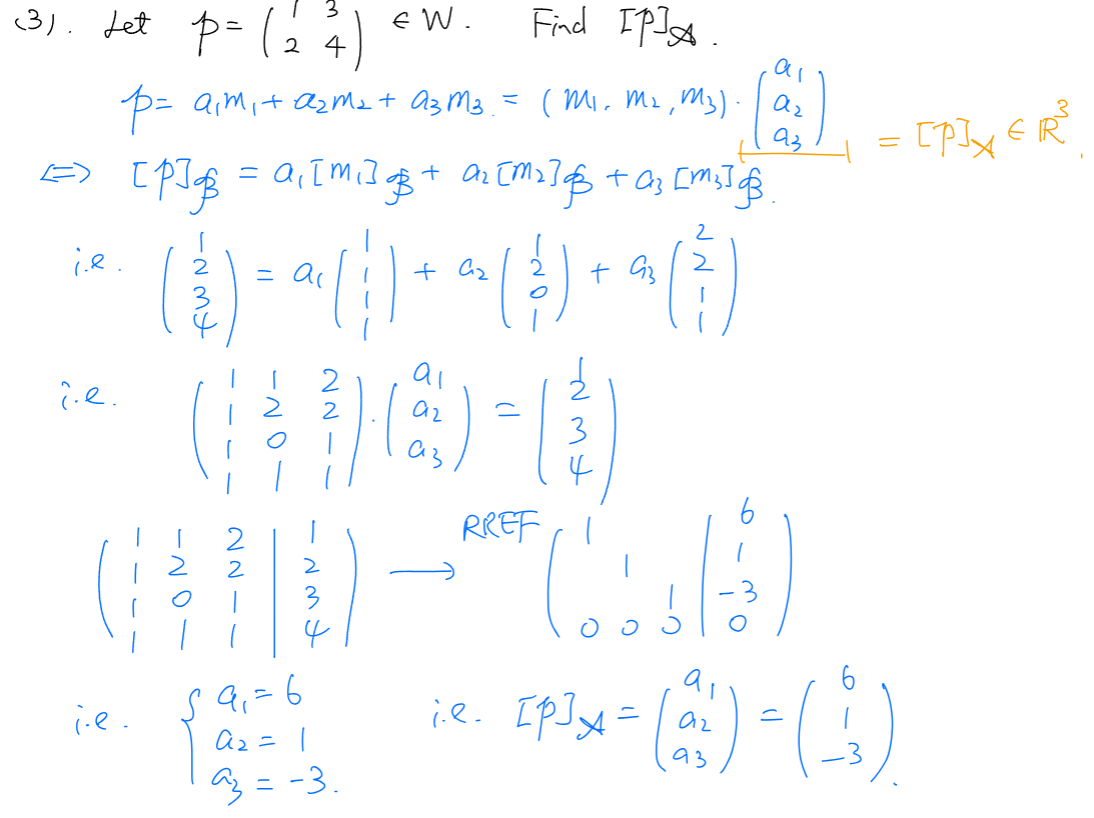 (3). Let p = ( 1 3 ; 2 4 ) ∈ W. Find [p]_A.
p = a₁m₁ + a₂m₂ + a₃m₃ = (m₁, m₂, m₃) · ( a₁ ; a₂ ; a₃ ) = [p]_A ∈ ℝ³.
⟺ [p]_B = a₁[m₁]_B + a₂[m₂]_B + a₃[m₃]_B.
i.e. ( 1 ; 2 ; 3 ; 4 ) = a₁ ( 1 ; 1 ; 1 ; 1 ) + a₂ ( 1 ; 2 ; 0 ; 1 ) + a₃ ( 2 ; 2 ; 1 ; 1 )
i.e. ( 1 1 2 ; 1 2 2 ; 1 0 1 ; 1 1 1 ) · ( a₁ ; a₂ ; a₃ ) = ( 1 ; 2 ; 3 ; 4 )
( 1 1 2 | 1 ; 1 2 2 | 2 ; 1 0 1 | 3 ; 1 1 1 | 4 ) ⟶ RREF ( 1 | 6 ; 1 | 1 ; 1 | -3 ; 0 0 0 | 0 )
i.e. { a₁ = 6 ; a₂ = 1 ; a₃ = -3. i.e. [p]_A = ( a₁ ; a₂ ; a₃ ) = ( 6 ; 1 ; -3 ).